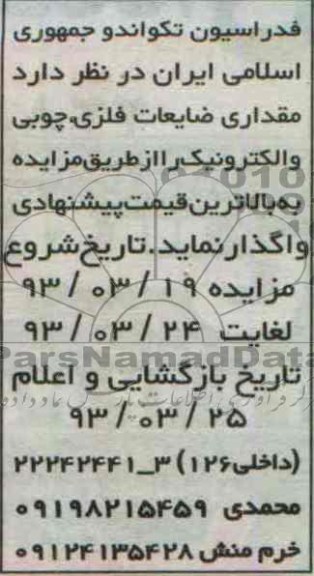 فدراسیون تکواندو جمهوری
اسلامی ایران در نظر دارد
مقداری ضایعات فلزی،چوبی
والکترونیک رااز طریق مزایده
به بالاترین قیمت پیشنهادی
واگذار نماید.تاریخ شروع
مزایده ۱۹ / ۰۳ / ۹۳
لغایت ۲۴ / ۰۳ / ۹۳
ParsNamadData
تاریخ بازگشایی و اعلام
۲۵ / ۰۳ / ۹۳
(داخلی۱۲۶) ۳_۲۲۲۴۲۴۴۱
محمدی ۰۹۱۹۸۲۱۵۴۵۹
خرم منش ۰۹۱۲۴۱۳۵۴۲۸